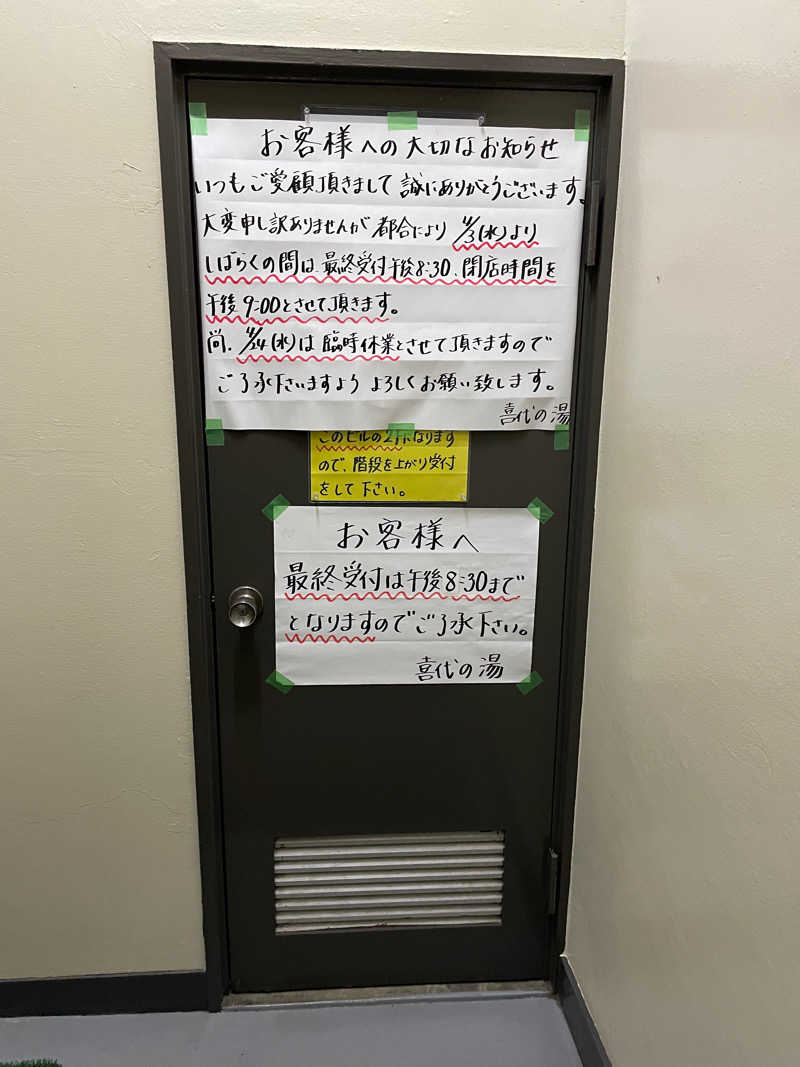 お客様への大切なお知らせ
いつもご愛顧頂きまして誠にありがとうございます。
大変申し訳ありませんが都合により4/3(水)より
しばらくの間は、最終受付午後8:30、閉店時間を
午後9:00とさせて頂きます。
尚、4/24(水)は臨時休業とさせて頂きますので
ご了承下さいますようよろしくお願い致します。
喜代の湯
このビルの2Fになります
ので、階段を上がり受付
をして下さい。
お客様へ
最終受付は午後8:30まで
となりますのでご了承下さい。
喜代の湯